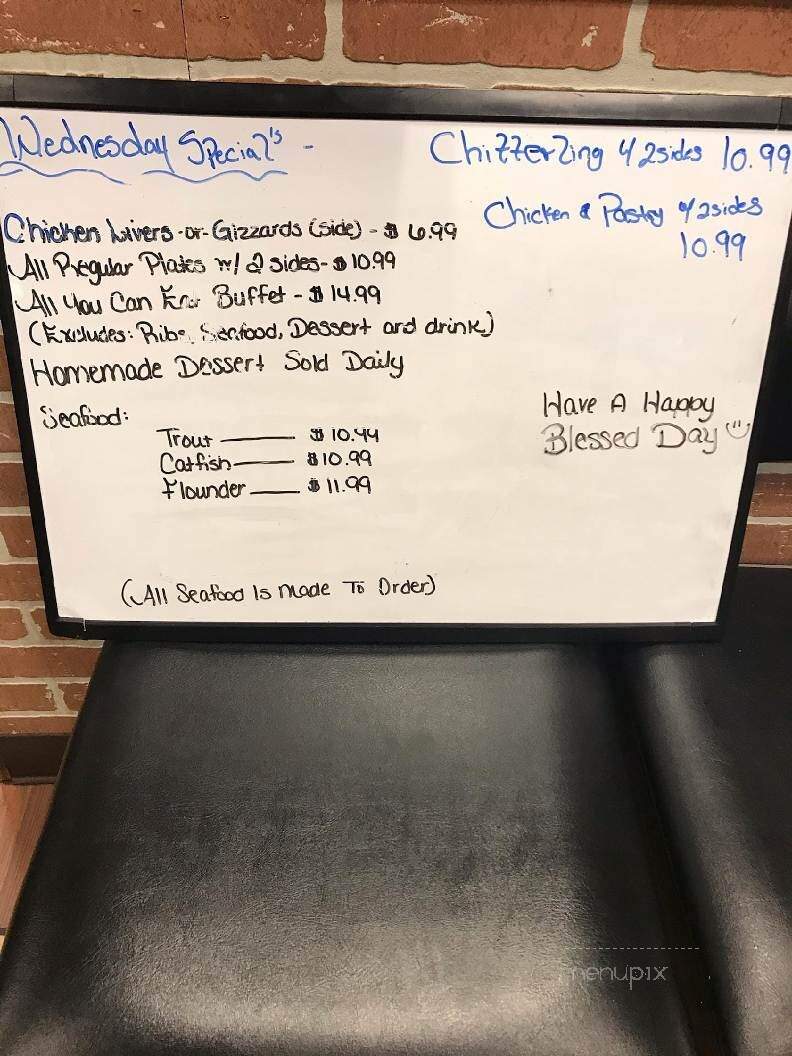 Wednesday Special's -
Chitterling w/ 2 sides 10.99
Chicken & Pastry w/ 2 sides
10.99
Chicken Livers -or- Gizzards (side) - $ 6.99
All Regular Plates w/ 2 sides - $ 10.99
All You Can Eat Buffet - $ 14.99
(Excludes: Ribs, Seafood, Dessert and drink)
Homemade Dessert Sold Daily
Seafood:
Trout — $ 10.44
Catfish — $ 10.99
Flounder — $ 11.99
Have A Happy
Blessed Day
(All Seafood Is Made To Order)
menupix